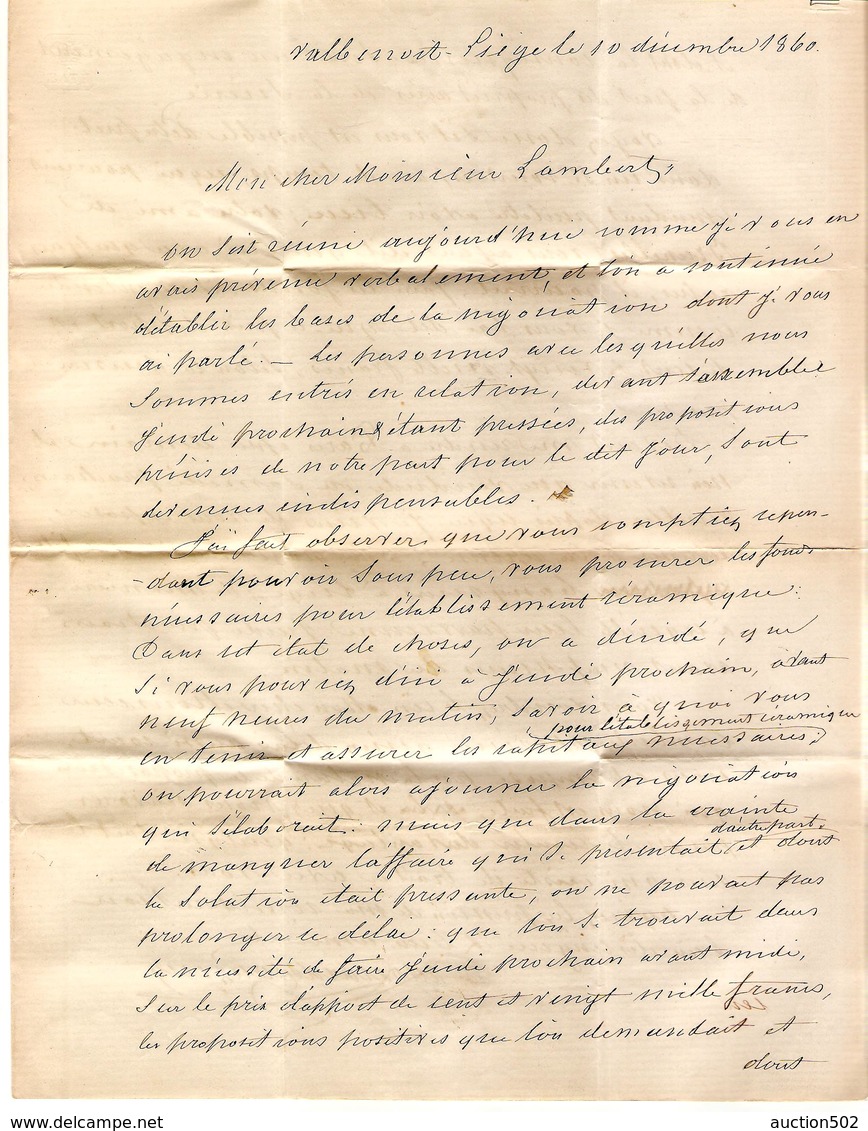 Valbenoit-Liége le 10 décembre 1860.
Mon cher Monsieur Lambert,
On s'est réuni aujourd'hui comme je vous en
avais prévenu verbalement, et l'on a continué
d'établir les bases de la négociation dont je vous
ai parlé. — Les personnes avec lesquelles nous
sommes entrés en relation, devant s'assembler
Jeudi prochain & étant pressées, des propositions
précises de notre part pour le dit jour, sont
devenues indispensables.
J'ai fait observer que vous comptiez cepen-
-dant pouvoir sous peu, vous procurer les fonds
nécessaires pour l'établissement céramique:
Dans cet état de choses, on a décidé, que
si vous pouviez d'ici à Jeudi prochain, avant
neuf heures du matin, savoir à quoi vous
pour l'établissement céramique
en tenir et assurer les capitaux nécessaires;
on pourrait alors ajourner la négociation
qui s'élaborait: mais que dans la crainte
d'autre part,
de manquer l'affaire qui se présentait et dont
la solution était pressante, on ne pouvait pas
prolonger ce délai: que l'on se trouvait dans
la nécessité de faire Jeudi prochain avant midi,
sur le prix d'apport de cent et vingt mille francs,
les propositions positives que l'on demandait et
dont
auction502